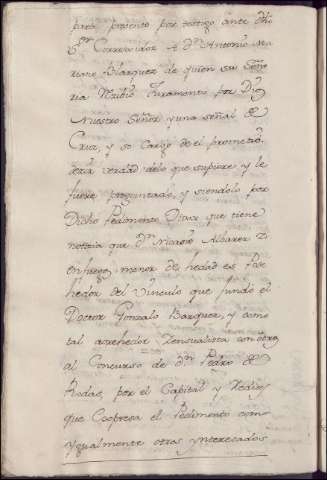 parte presento por testigo ante dho
Sor Correxidor A Dn Antonio Ma
riano Blazquez de quien su Seño
ria Rezibio Juramento por Dios
Nuestro Señor y una señal de
Cruz, y so cargo de el prometio
dezir verdad delo que supiere y le
fuere preguntado, y siendolo por
Dicho Pedimento Dixo que tiene
noticia que Dn Nicasio Albarez
menor de hedad es Pose
hedor del Vinculo que fundo el
Doctor Gonzalo Barquer, y como
tal acrehedor Zensualista con otros
al Concurso de Dn Pedro de
Rodas, por el Capital y Redios
que Coopresa el Pedimento como
ygualmente otros ynteresados